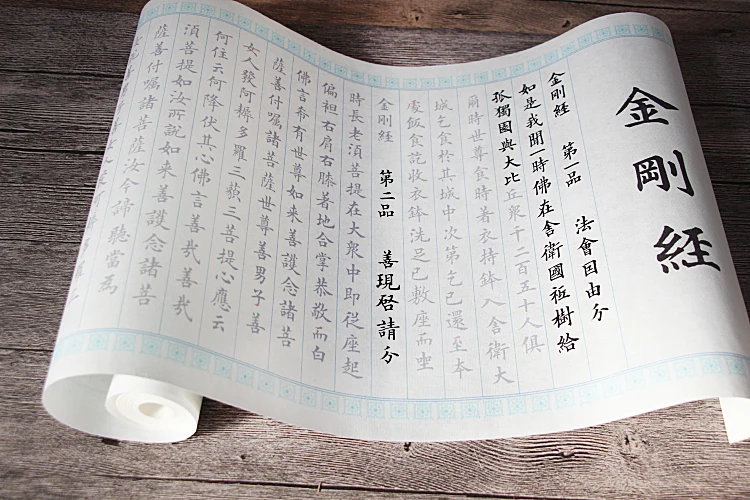 金剛經
金剛經 第一品 法會因由分
如是我聞一時佛在舍衛國祇樹給
孤獨園與大比丘眾千二百五十人俱
爾時世尊食時著衣持鉢入舍衛大
城乞食於其城中次第乞已還至本
處飯食訖收衣鉢洗足已敷座而坐
金剛經 第二品 善現啓請分
時長老湏菩提在大眾中即從座起
偏袒右肩右膝著地合掌恭敬而白
佛言希有世尊如來善護念諸菩
薩善付囑諸菩薩世尊善男子善
女人發阿耨多羅三藐三菩提心應云
何住云何降伏其心佛言善哉善哉
湏菩提如汝所說如來善護念諸菩
薩善付囑諸菩薩汝今諦聽當為